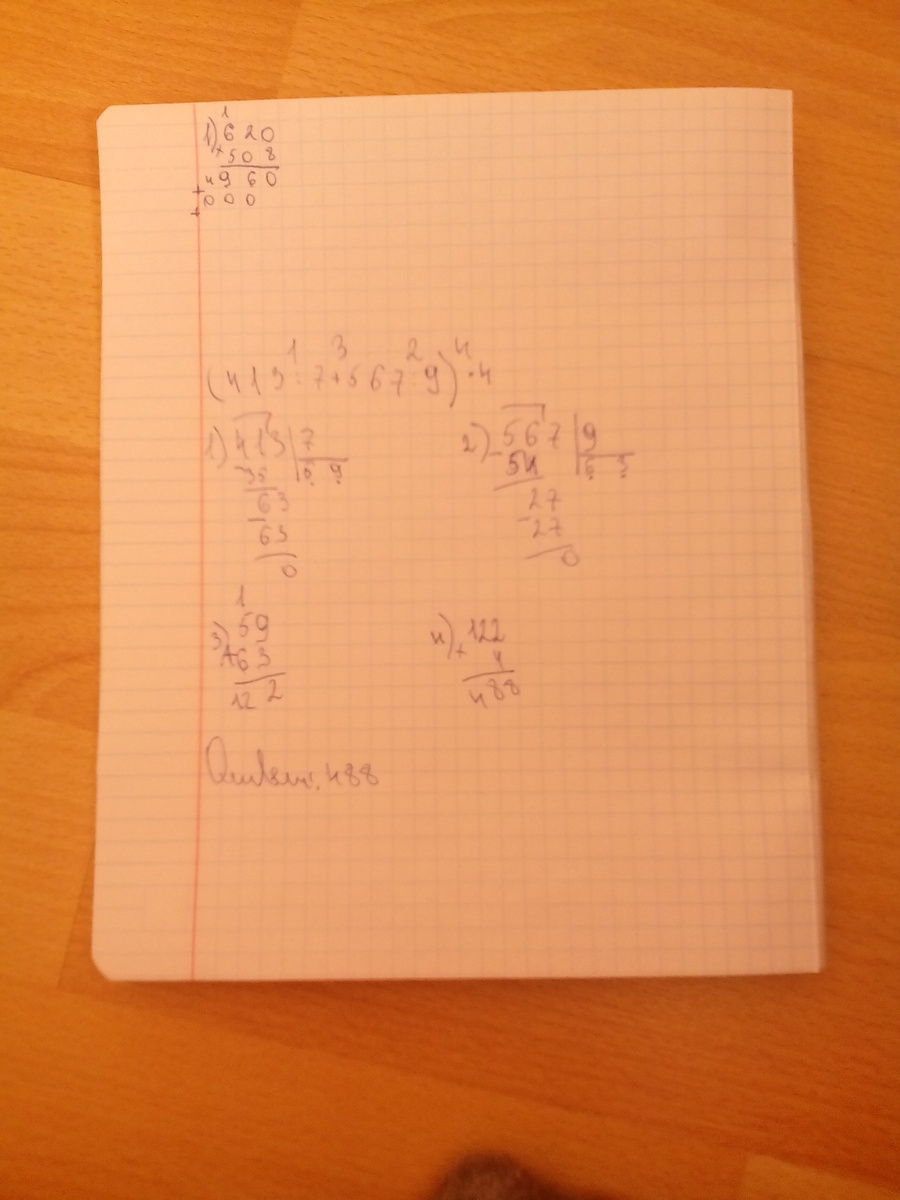 1
1) 620
× 508
4960
+ 000
1 3 2 4
(413 : 7 + 567 : 9) · 4
1) 413 | 7
- 35 | 59
63
- 63
0
2) 567 | 9
- 54 | 63
27
- 27
0
1
3) 59
+ 63
122
4) 122
× 4
488
Ответ: 488